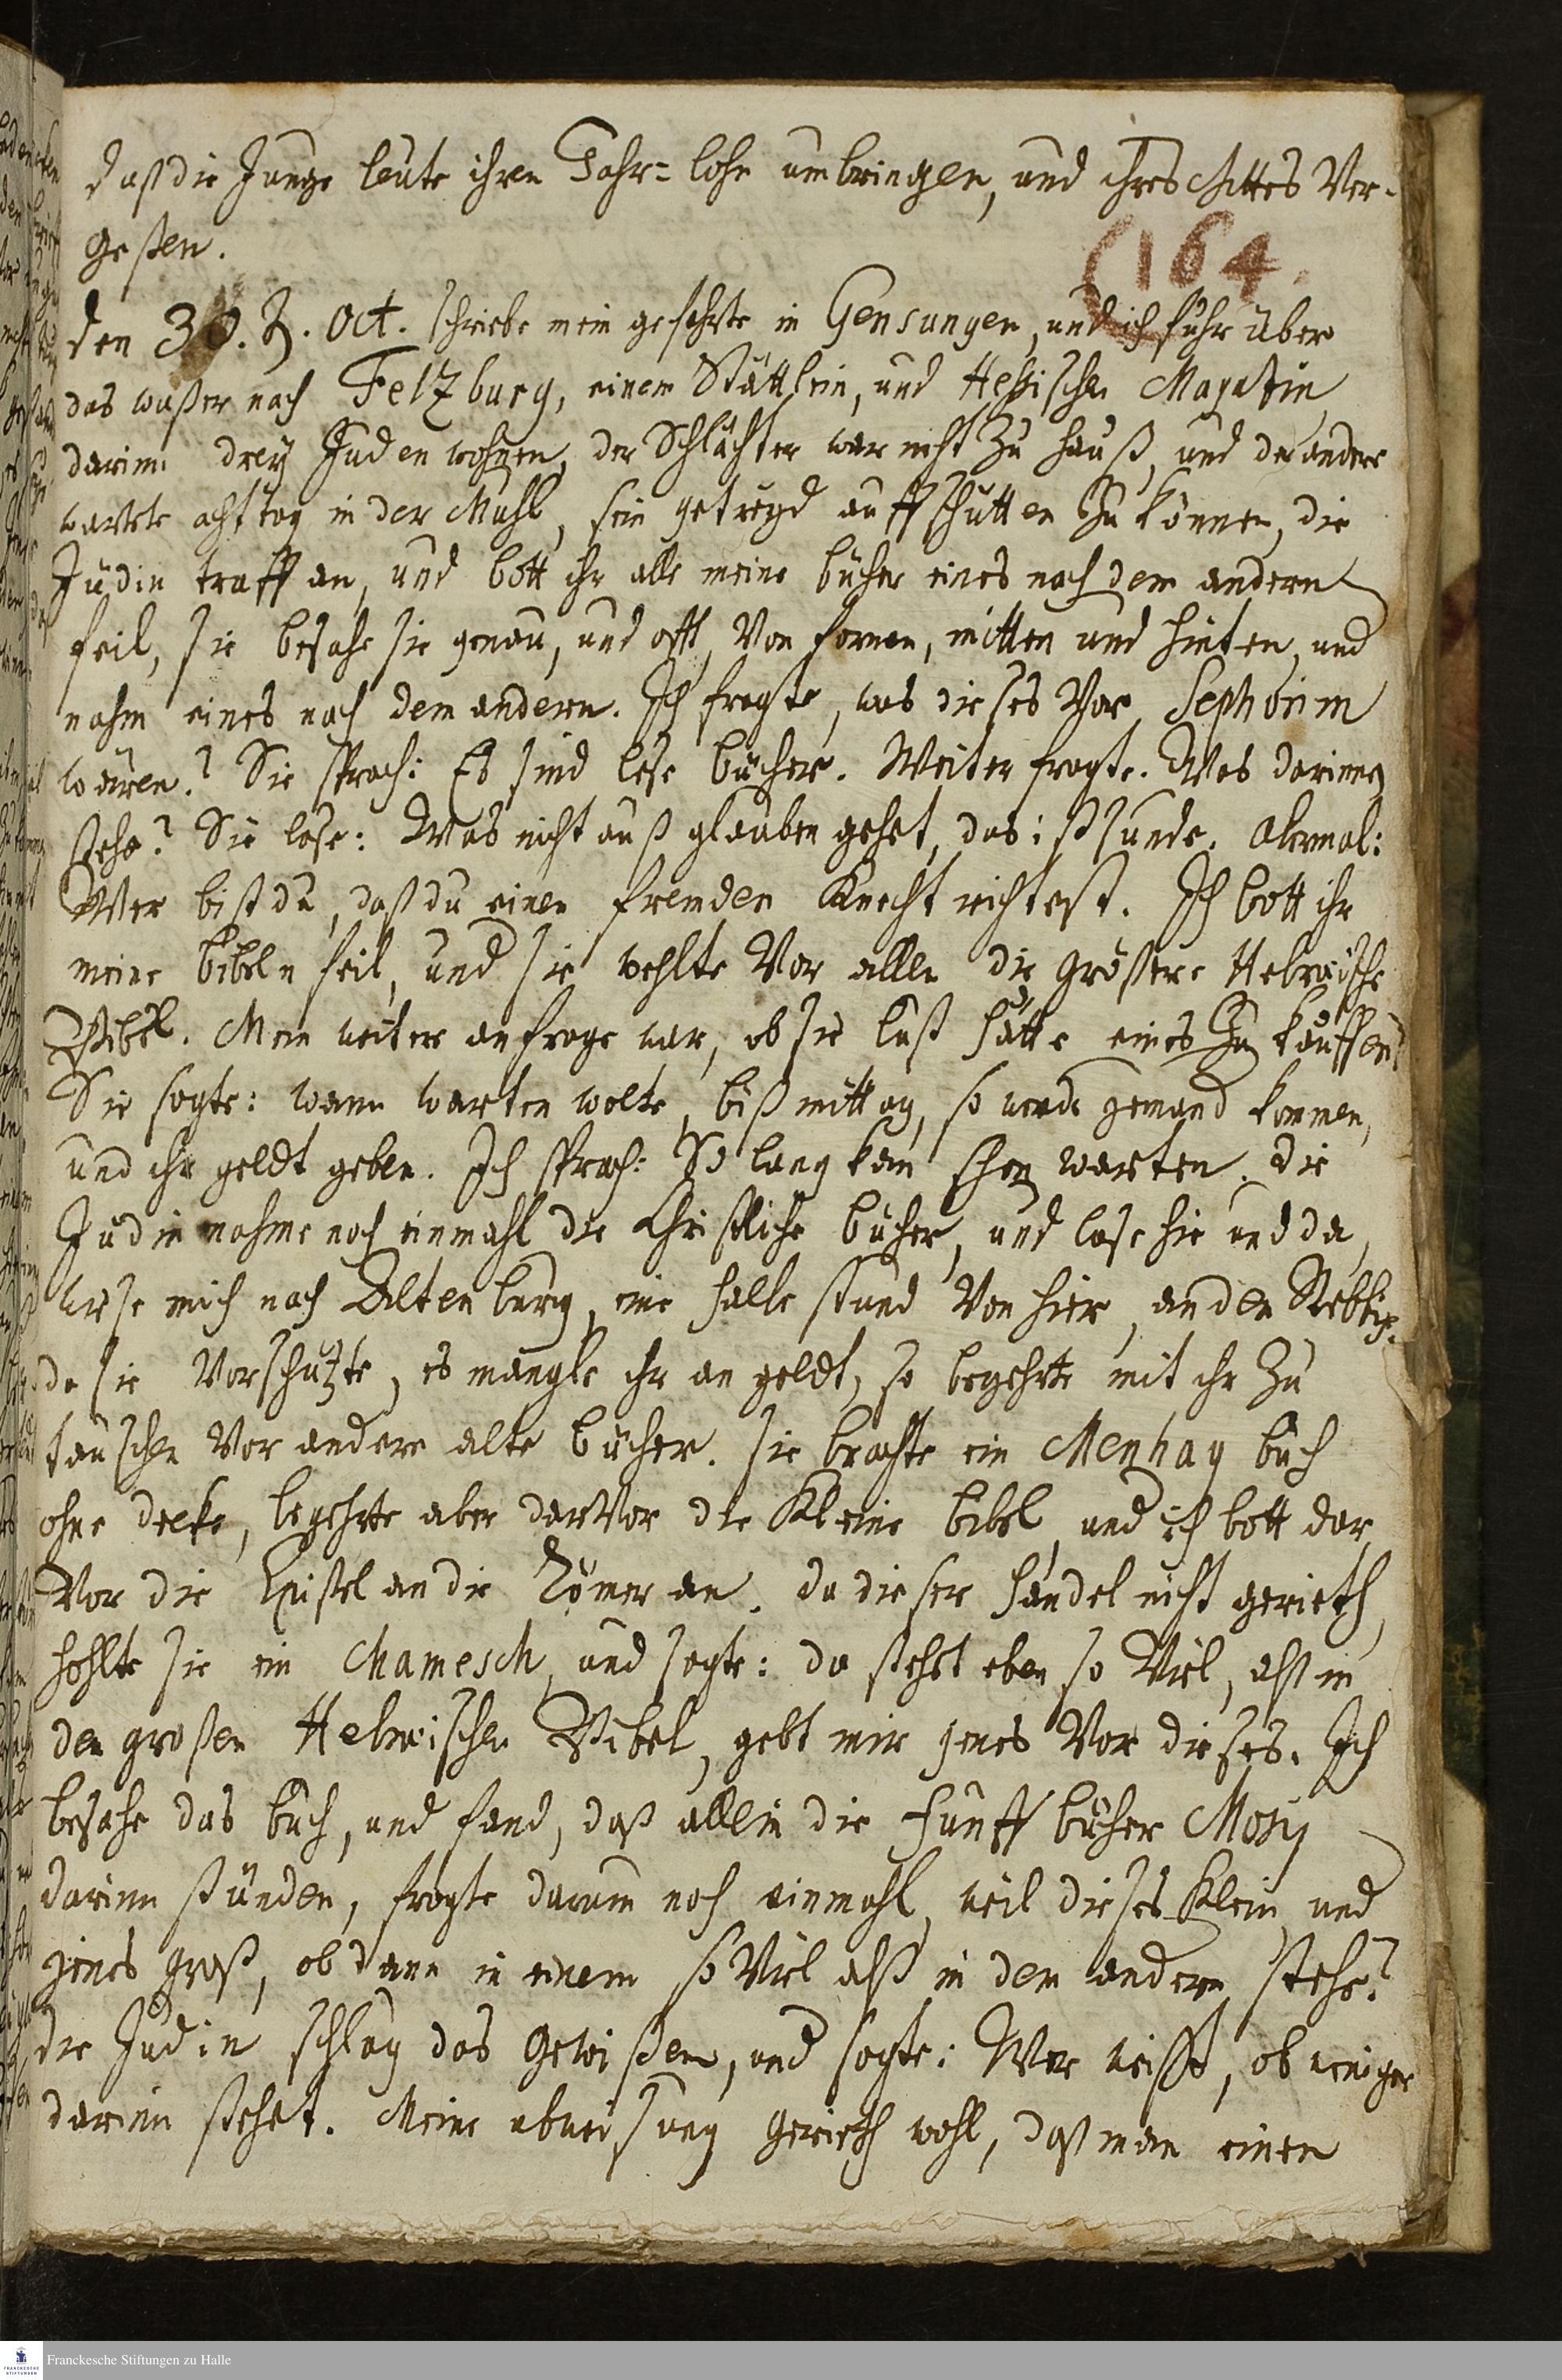 daß die Junge leute ihren Jahr=lohn umbringen, und ihres Gottes Ver-
geßen.
(164.
den 30. Oct. schriebe mein gefehrte in Gensungen, und ich fuhr über
das waßer nach Felzburg, einem Stättlein, und Heßischen Magatin
darinn drey Juden wohnen, der Schlächter war nicht zu hauß, und der andere
wartete acht tag in der Mühl, sein getreyd auffschütten zu können, die
Jüdin traff an, und bott ihr alle meine bücher eines nach dem andern
feil, sie besahe sie genau, und offt, von fornen, mitten und hinten, und
nahm eines nach dem andern. Ich fragte, was dieses vor Sephorim
wären? Sie sprach: Es sind lese bücher. Weiter fragte. Was darinnen
stehe? Sie lase: Was nicht auß glauben gehet, das ist sünde. Abermal:
Wer bist du, daß du einen fremden Knecht richtest. Ich bott ihr
meine bibeln feil, und sie wehlte vor allen die größere Hebreische
Bibel. Mein weitere anfrage war, ob sie lust hätte eines zu kauffen?
Sie sagte: wann warten wolte, biß mittag, so werde jemand kommen,
und ihr geldt geben. Ich sprach: So lang kan schon warten. die
Jüdin nahme noch einmahl die Christliche bücher, und lase hie und da,
wiese mich nach Altenburg, eine halbe stund von hier, an den
da sie vorschützte, es mangle ihr an geldt, so begehrte mit ihr zu
tauschen vor andere alte bücher. sie brachte ein Menhag buch
ohne decke, begehrte aber darvor die Kleine bibel, und ich bott dar
vor die Epistel an die Römer an. da dieser handel nicht gerieth,
hohlte sie ein Chamesch, und sagte: da stehet eben so viel, alß in
der großen Hebreischen Bibel, gebt mir jenes vor dieses. Ich
besahe das buch, und fand, daß allein die fünff bücher Mosy
darinn stünden, fragte darum noch einmahl, weil dieses klein und
jenes groß, ob dann in einem so viel alß in dem andern stehe?
die Jüdin schlug das gewißen, und sagte: Wer weißt, ob weniger
darinn stehet. Meine abweisung gerieth wohl, daß man einen
Franckesche Stiftungen zu Halle